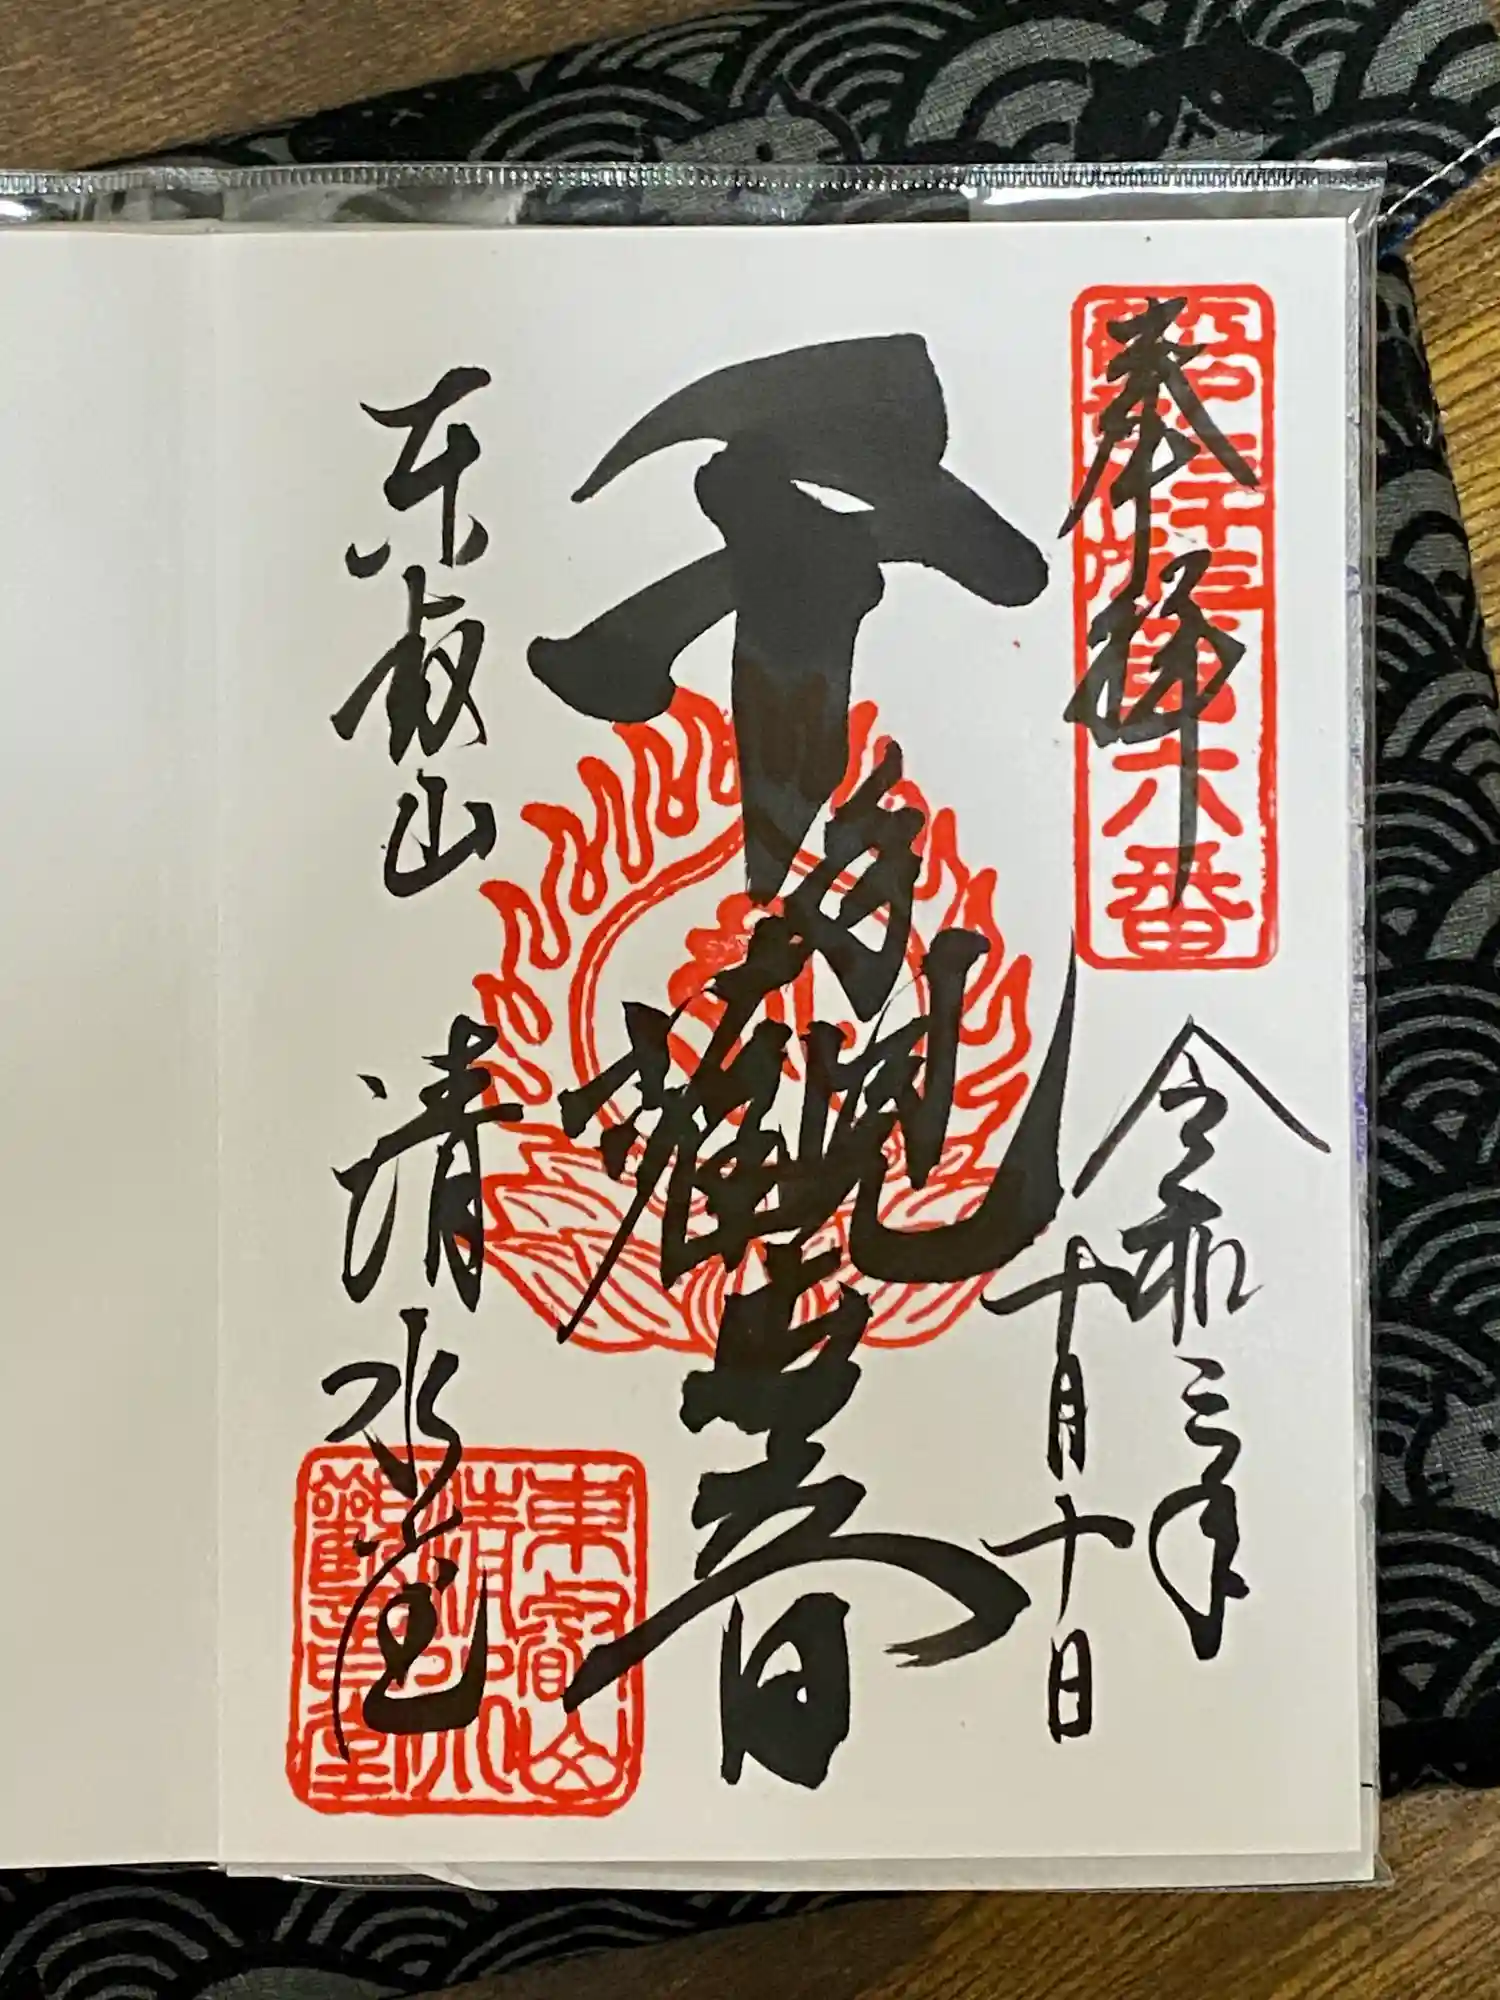 奉拝
三十三
第六番
令和三年
十月十日
千手觀世音
東叡山 清水堂
東叡山
清水
觀音堂